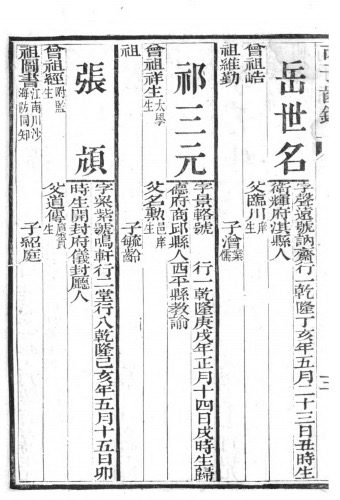 岳世名
字聲遠號訥齋行一乾隆丁亥年五月二十三日丑時生
衛輝府淇縣人
曾祖皓
祖維勤
父臨川庠生
子澮業儒
祁三元
字景輅號 行一乾隆庚戌年正月十四日戌時生歸
德府商邱縣人西平縣教諭
曾祖祥生太學生
祖
父名勳邑庠生
子毓齡
張頏
字粲紫號鳴軒行二堂行八乾隆己亥年五月十五日卯
時生開封府儀封廳人
曾祖經附監生
祖圖書江南川沙海防同知
父道傳歲貢生
子紹庭